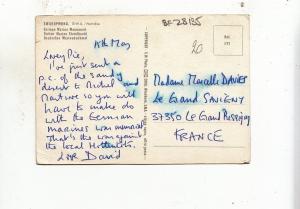 SWAKOPMUND, S.W.A. / Namibia
German Marine Monument
German Marine Gedenkteken
Deutsches Marinedenkmal
BF 28135
20
Ref.
18th May
Lovey Pie,
I've just sent a
p.c. of the sandy
desert to Michel and
so you will
have to make do
with the German
marines war memorial
That's the war against
the local Hottentots.
Love David
COPYRIGHT
Madame Marcelle DAVIES
Le Grand SAVIGNY
37350 Le Grand Pressigny
FRANCE